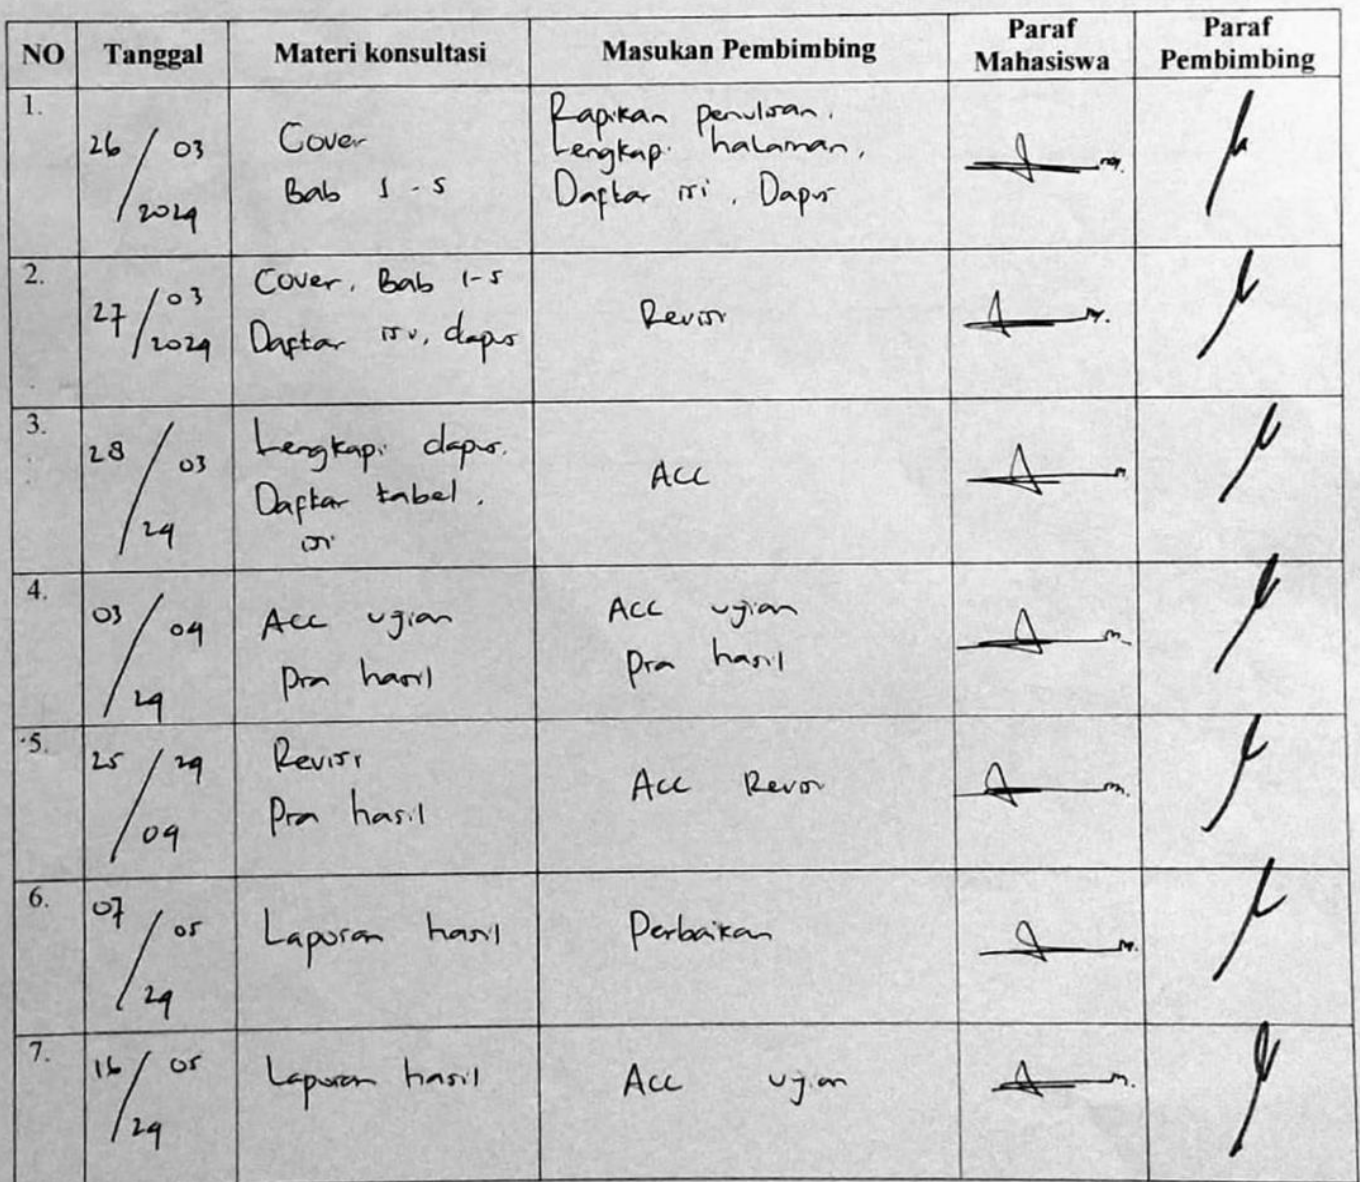 NO Tanggal Materi konsultasi Masukan Pembimbing Paraf Mahasiswa Paraf Pembimbing
1.
26 / 03
2024
Cover
Bab 1 - 5
Rapikan penulisan,
Lengkapi halaman,
Daftar isi, Dapus
2.
27 / 03
2024
Cover, Bab 1-5
Daftar isi, dapus
Revisi
3.
28 / 03
24
Lengkapi dapus,
Daftar tabel,
isi
ACC
4.
03 / 04
24
Acc ujian
Pra hasil
Acc ujian
Pra hasil
5.
25 / 24
04
Revisi
Pra hasil
Acc Revisi
6.
07 / 05
24
Laporan hasil
Perbaikan
7.
16 / 05
24
Laporan hasil
Acc ujian